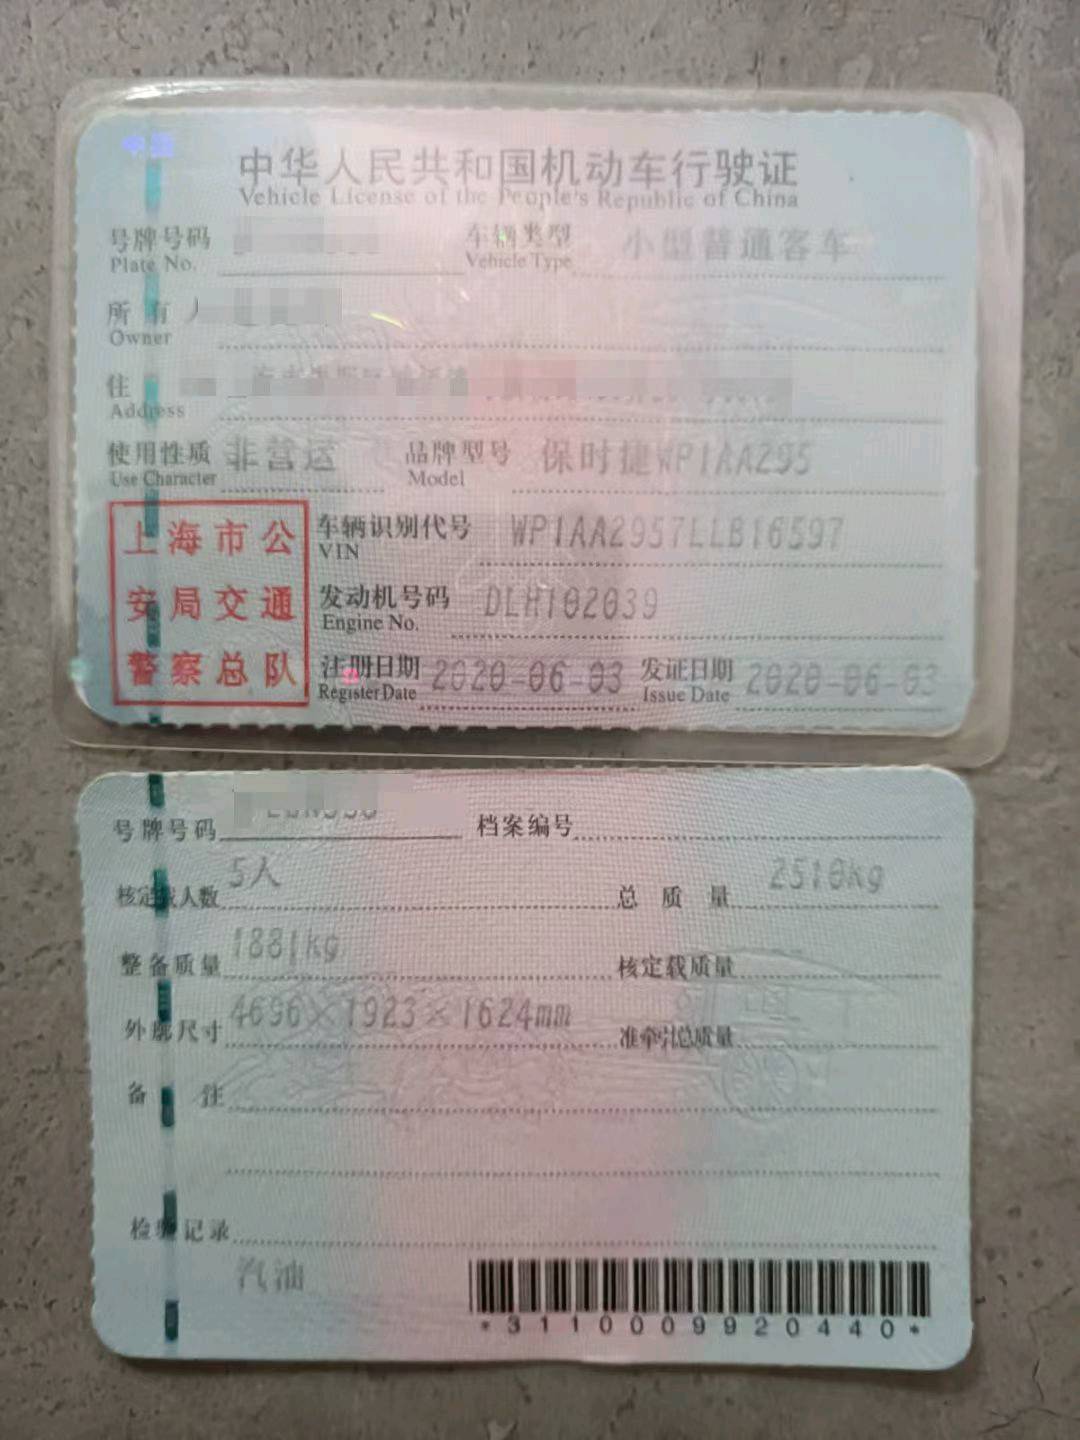 中华人民共和国机动车行驶证
Vehicle License of the People's Republic of China
号牌号码 车辆类型 小型普通客车
Plate No. Vehicle Type
所有人
Owner
住
Address
使用性质 非营运 品牌型号 保时捷WP1AA295
Use Character Model
上海市公
安局交通
警察总队
车辆识别代号 WP1AA2957LLB16597
VIN
发动机号码 DLH102039
Engine No.
注册日期 2020-06-03 发证日期 2020-06-03
Register Date Issue Date
号牌号码 档案编号
核定载人数 5人 总质量 2510kg
整备质量 1881kg 核定载质量
外廓尺寸 4696×1923×1624mm 准牵引总质量
备注
检验记录
汽油
*3110009920440*